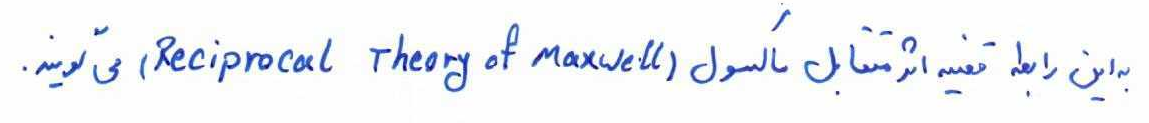 به این رابطه قضیه اثر متقابل ماکسول (Reciprocal Theory of Maxwell) می‌گویند.